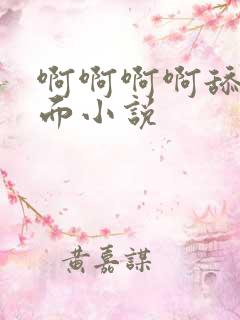 啊啊啊啊舔
而小说
黄嘉謀